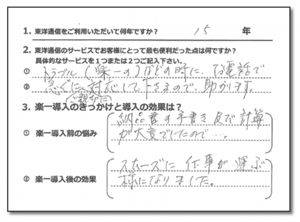 1. 東洋通信をご利用いただいて何年ですか？ 15 年
2. 東洋通信のサービスでお客様にとって最も便利だった点は何ですか？
具体的なサービスを1つまたは2つご記入下さい。
① トラブル（楽一の）などの時に、お電話で
② すぐに対応して下さるので、助かります。
3. 楽一導入のきっかけと導入の効果は？
① 楽一導入前の悩み 納品書の手書き及び計算
が大変でしたので…。
② 楽一導入後の効果 スムーズに仕事が運ぶ
様になりました。